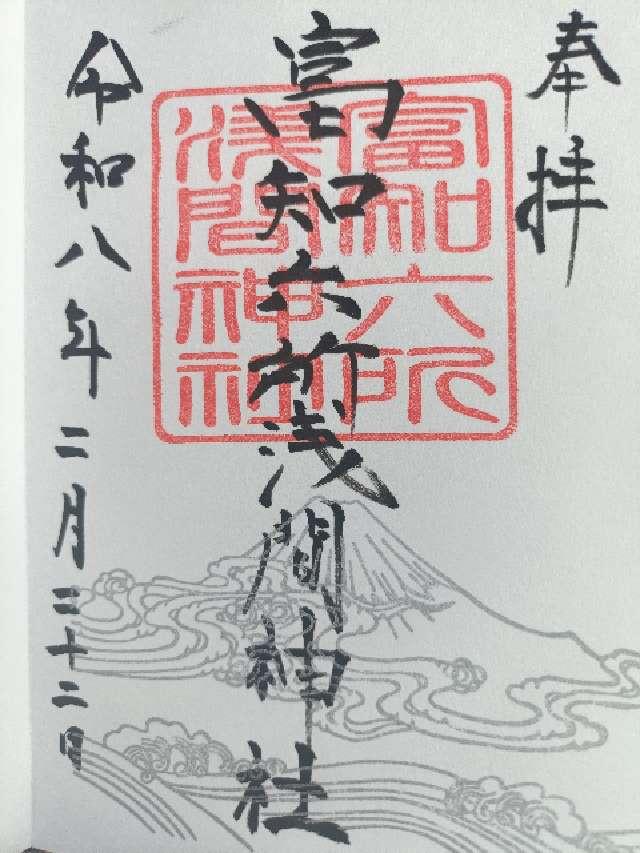 奉拝
富知六所浅間神社
富知六所
浅間神社
令和八年二月二十二日